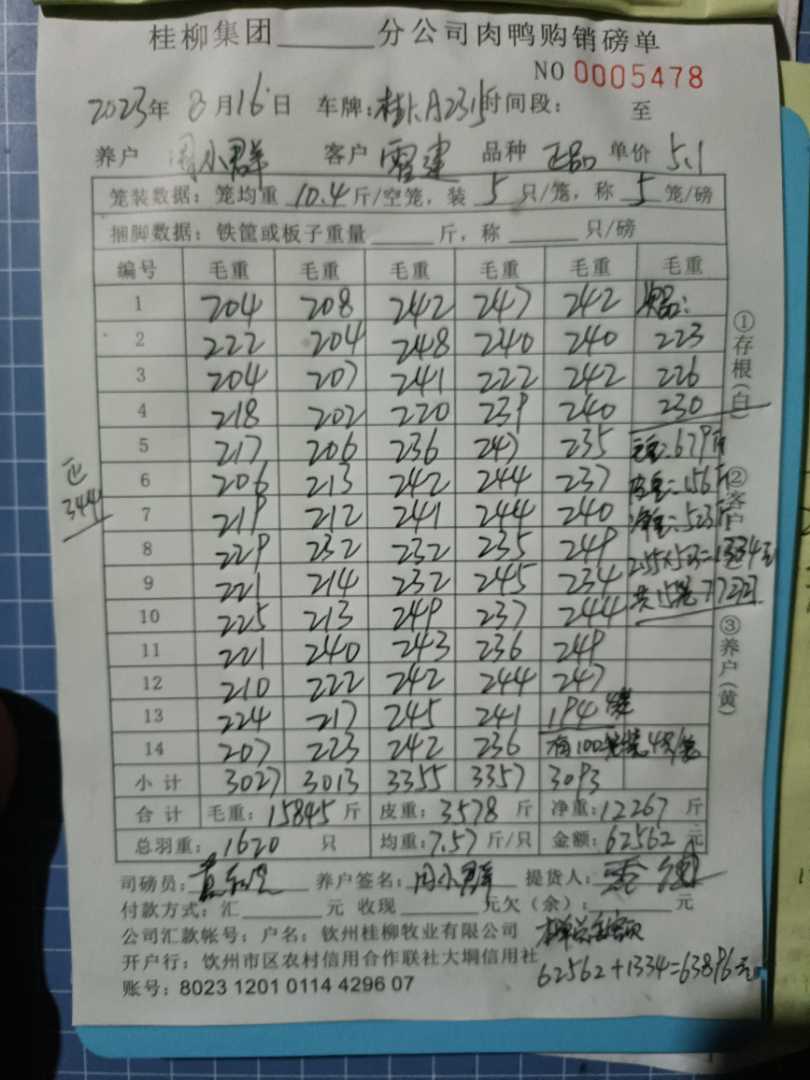 桂柳集团______分公司肉鸭购销磅单
NO 0005478
2023年 8月16日 车牌:桂A2315 时间段: 至
养户 周小群 客户 雷建 品种 正品 单价 5.1
笼装数据: 笼均重 10.4 斤/空笼, 装 5 只/笼, 称 5 笼/磅
捆脚数据: 铁筐或板子重量______斤, 称______只/磅
编号 毛重 毛重 毛重 毛重 毛重 毛重
1 204 208 242 247 242 次品:
2 222 204 248 240 240 223
3 204 207 241 222 242 226
4 218 202 220 239 240 230
5 217 206 236 247 235 毛重:679斤
6 206 213 242 244 237 皮重:156斤
7 219 212 241 244 240 净重:523斤
8 229 232 232 235 249 2.55×523=1334元
9 221 214 232 245 234 共15笼
10 225 213 249 237 244
11 221 240 243 236 249
12 210 222 242 244 247
13 224 217 245 241 194 4笼
14 207 223 242 236 有100笼装4只/笼
小计 3027 3013 3355 3357 3093
合计 毛重:15845斤 皮重:3578斤 净重:12267斤
总羽重: 1620 只 均重:7.57斤/只 金额:62562元
司磅员: 养户签名:周小群 提货人:
付款方式: 汇______元 收现______元欠(余):______元
公司汇款帐号: 户名: 钦州桂柳牧业有限公司
开户行: 钦州市区农村信用合作联社大垌信用社
62562+1334=63896元
账号: 8023 1201 0114 4296 07
①存根(白)
②客户
③养户(黄)
正
344